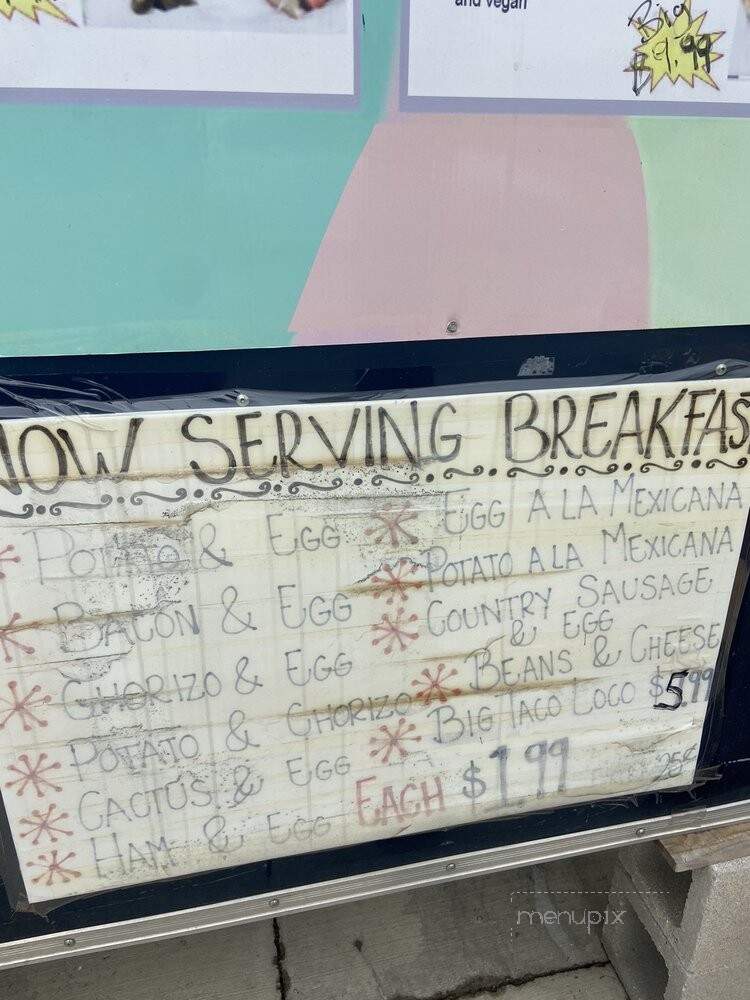 and vegan
Big
9.99
NOW SERVING BREAKFAS
Potato & Egg
Bacon & Egg
Chorizo & Egg
Potato & Chorizo
Cactus & Egg
Ham & Egg
Egg a la Mexicana
Potato a la Mexicana
Country Sausage
& Egg
Beans & Cheese
Big Taco Loco $5.99
Each $1.99
25¢
menupix